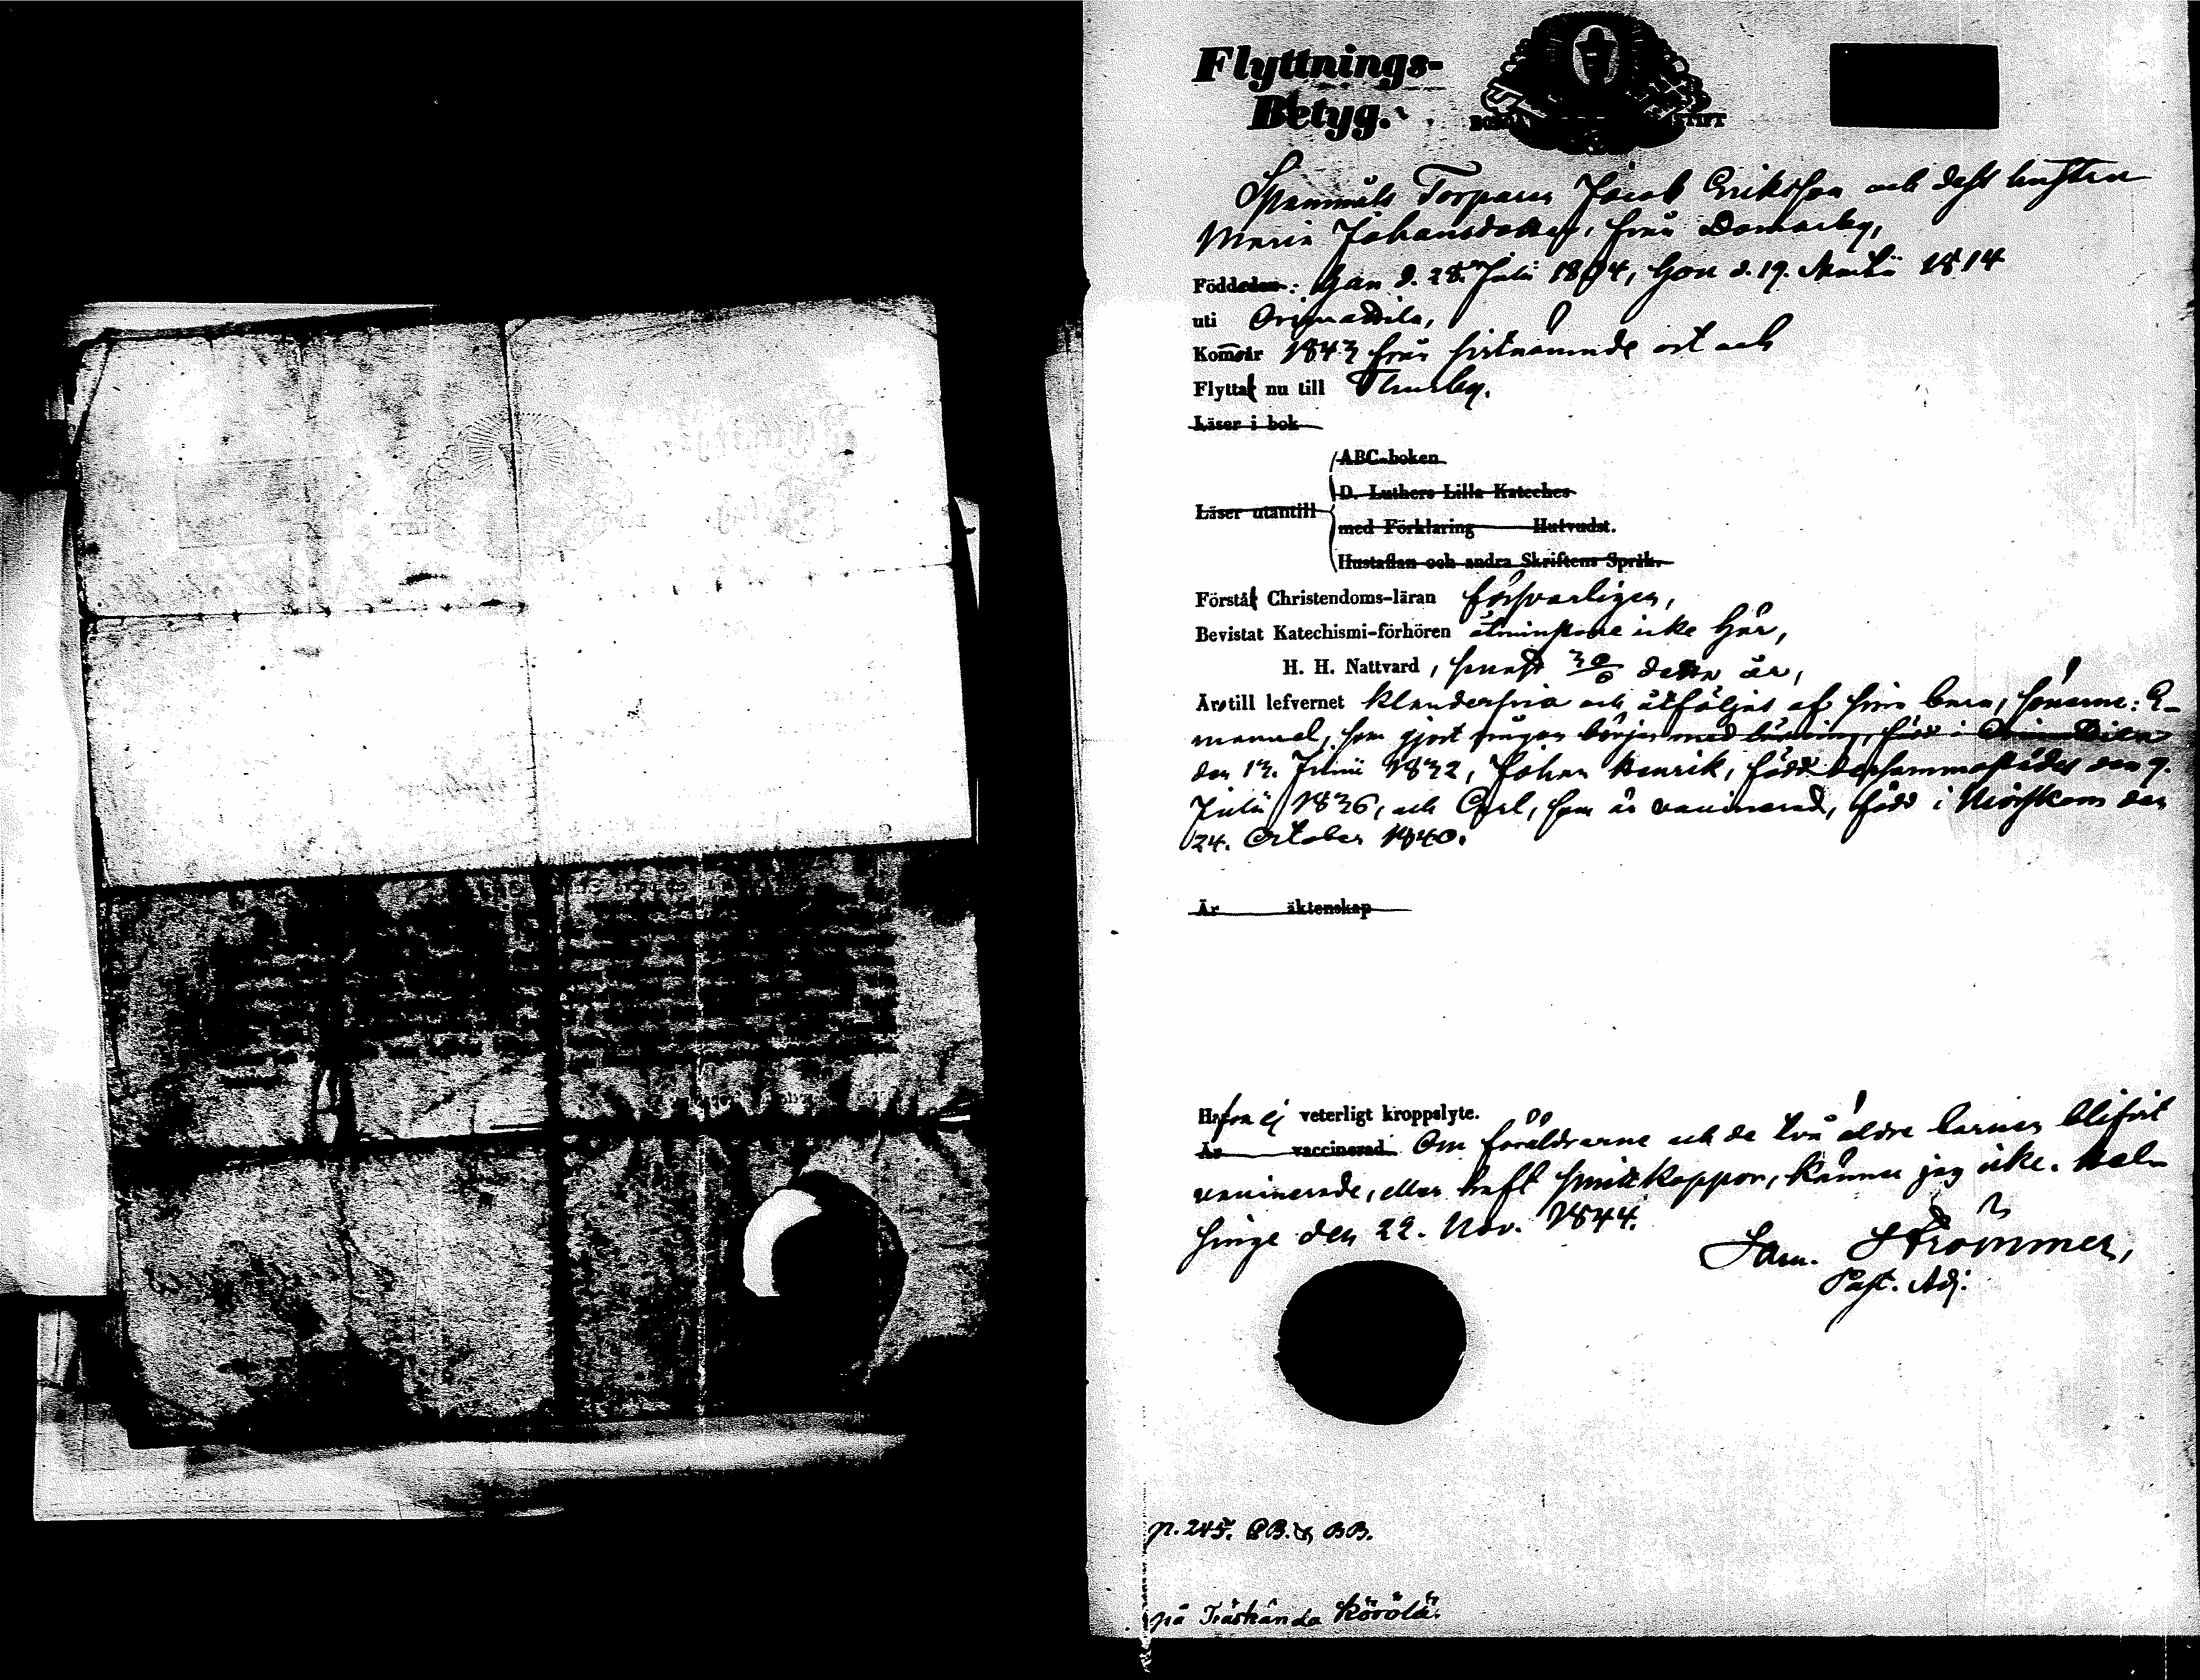 Flyttnings-
Betyg.
BORGÅ STIFT
Torparen Jacob Eriksson och dess hustru
Maria Johansdotter, från Domarby,
Födde den: Han d. 28. Julii 1804, Hon d. 19. Martii 1814
uti Orimattila,
Kom̅o år 1843 från sistnämnde ort och
Flytta nu till Thusby.
Läser i bok
ABC-boken
D. Luthers Lilla Kateches
Läser utantill
med Förklaring Hufvudst.
Hustaflan och andra Skriftens Språk.
Förstå Christendoms-läran försvarligen,
Bevistat Katechismi-förhören åtminstone icke här,
H. H. Nattvard, senast detta år,
Äro till lefvernet klanderfria och åtföljas af sina barn, sönerne: E-
manuel, som gjort någon början med läsning, född i Orimattila
den 13. Junii 1832, Johan Henrik, född dersammastädes den 9.
Julii 1836, och Carl, som är vaccinerad, född i Mörskom den
24. October 1840.
Är äktenskap
Hafva ej veterligt kroppslyte.
Är vaccinerad. Om föräldrarne och de två äldre barnen blifvit
vaccinerade, eller haft smittkoppor, känner jag icke. Hel-
singe den 22. Nov. 1844.
Sam. Strömmer,
Past. Adj.
p. 245. BB.
på Träskända Körölä.